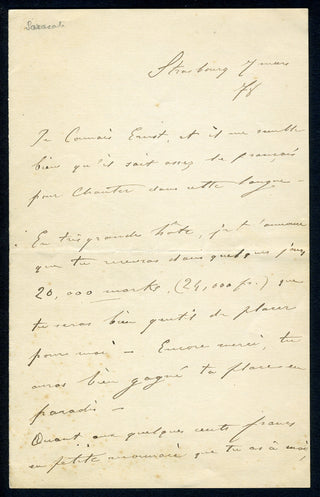 Sarasate
Strasbourg 7 mars
78
Je connais Ernst, et il me semble
bien qu'il sait assez le français
pour chanter dans cette langue –
En très grande hâte, je t'annonce
que tu recevras dans quelques jours
20,000 marks, (24,000 fs.) que
tu seras bien gentil de placer
pour moi – Encore merci, tu
auras bien gagné ta place en
paradis –
Quant aux quelques cents francs
en petite monnaie que tu as à moi,